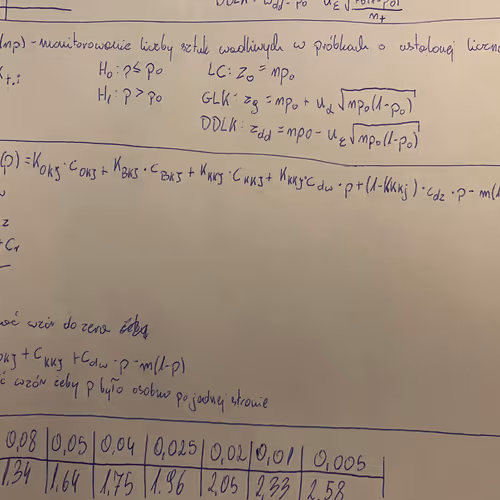 DDLK: z_dd = p₀ - u_ε √(p₀(1-p₀)/n_t)
(np) - monitorowanie liczby sztuk wadliwych w próbkach o ustalonej
K_t,i H₀: p ≤ p₀ LC: z₀ = np₀
H₁: p > p₀ GLK: z_g = np₀ + u_α √(np₀(1-p₀))
DDLK: z_dd = np₀ - u_ε √(np₀(1-p₀))
(p) = K_OKJ · C_OKJ + K_BKJ · C_BKJ + K_KKJ · C_KKJ + K_KKJ · C_dw · p + (1-K_KKJ) · C_dz · p - m(1
w
z
+C_r
wzór do zera żeby
OKJ + C_KKJ + C_dw · p - m(1-p)
ć wzór żeby p było osobno po jednej stronie
0,08 | 0,05 | 0,04 | 0,025 | 0,02 | 0,01 | 0,005
1.34 | 1.64 | 1.75 | 1.96 | 2,05 | 2,33 | 2,58